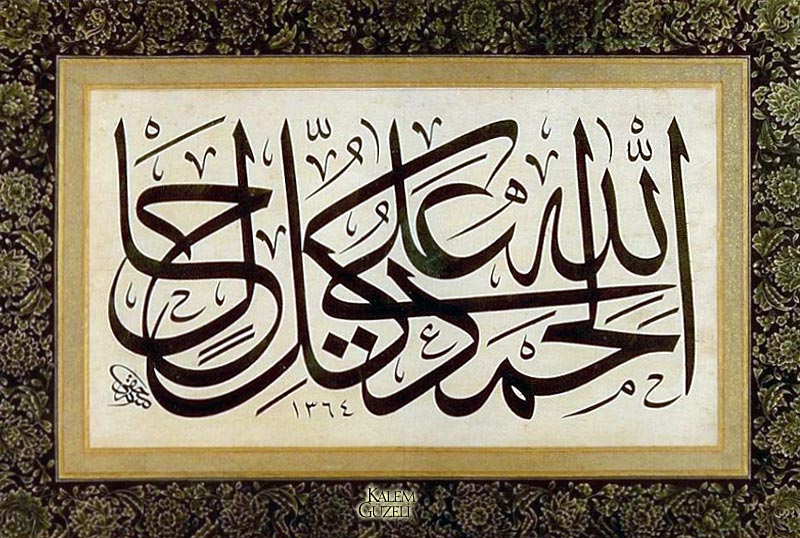 اَلْحَمْدُ لِلّٰهِ عَلٰى كُلِّ حَالٍ
١٣٦٤
KALEM
GÜZELİ